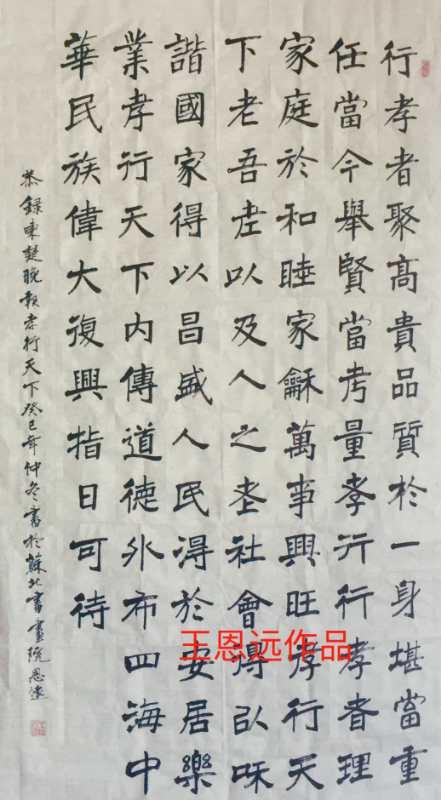 行孝者聚高貴品質於一身堪當重
任當今舉賢當考量孝行行孝者理
家庭於和睦家龢萬事興旺孝行天
下老吾老以及人之老社會得以咊
諧國家得以昌盛人民淂於安居樂
業孝行天下內傳道徳外布四海中
華民族偉大復興指日可待
恭錄東楚晚報孝行天下癸巳年仲冬書於蘇北書畫院恩遠
王恩远作品